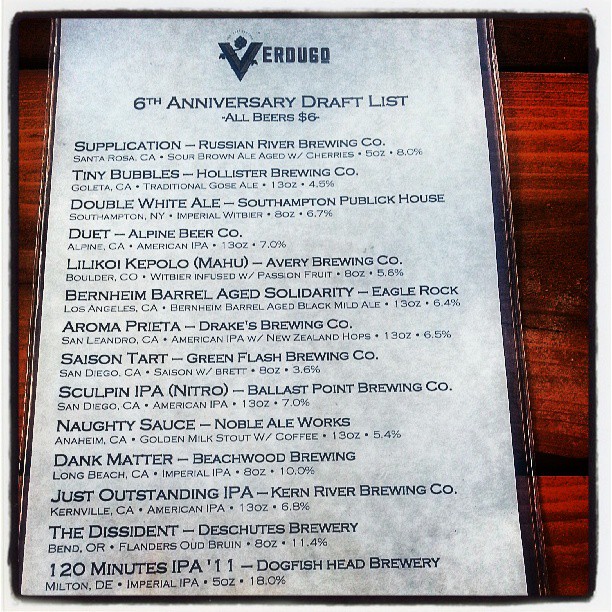 VERDUGO
6TH ANNIVERSARY DRAFT LIST
-ALL BEERS $6-
SUPPLICATION – RUSSIAN RIVER BREWING CO.
SANTA ROSA, CA • SOUR BROWN ALE AGED W/ CHERRIES • 5OZ • 8.0%
TINY BUBBLES – HOLLISTER BREWING CO.
GOLETA, CA • TRADITIONAL GOSE ALE • 13OZ • 4.5%
DOUBLE WHITE ALE – SOUTHAMPTON PUBLICK HOUSE
SOUTHAMPTON, NY • IMPERIAL WITBIER • 8OZ • 6.7%
DUET – ALPINE BEER CO.
ALPINE, CA • AMERICAN IPA • 13OZ • 7.0%
LILIKOI KEPOLO (MAHU) – AVERY BREWING CO.
BOULDER, CO • WITBIER INFUSED W/ PASSION FRUIT • 8OZ • 5.6%
BERNHEIM BARREL AGED SOLIDARITY – EAGLE ROCK
LOS ANGELES, CA • BERNHEIM BARREL AGED BLACK MILD ALE • 13OZ • 6.4%
AROMA PRIETA – DRAKE'S BREWING CO.
SAN LEANDRO, CA • AMERICAN IPA W/ NEW ZEALAND HOPS • 13OZ • 6.5%
SAISON TART – GREEN FLASH BREWING CO.
SAN DIEGO, CA • SAISON W/ BRETT • 8OZ • 3.6%
SCULPIN IPA (NITRO) – BALLAST POINT BREWING CO.
SAN DIEGO, CA • AMERICAN IPA • 13OZ • 7.0%
NAUGHTY SAUCE – NOBLE ALE WORKS
ANAHEIM, CA • GOLDEN MILK STOUT W/ COFFEE • 13OZ • 5.4%
DANK MATTER – BEACHWOOD BREWING
LONG BEACH, CA • IMPERIAL IPA • 8OZ • 10.0%
JUST OUTSTANDING IPA – KERN RIVER BREWING CO.
KERNVILLE, CA • AMERICAN IPA • 13OZ • 6.8%
THE DISSIDENT – DESCHUTES BREWERY
BEND, OR • FLANDERS OUD BRUIN • 8OZ • 11.4%
120 MINUTES IPA '11 – DOGFISH HEAD BREWERY
MILTON, DE • IMPERIAL IPA • 5OZ • 18.0%